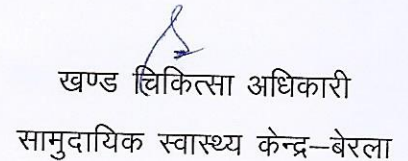 खण्ड चिकित्सा अधिकारी
सामुदायिक स्वास्थ्य केन्द्र–बेरला